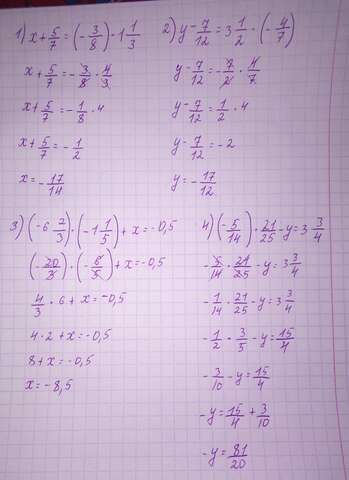 1) x + 5/7 = (- 3/8) · 1 1/3
x + 5/7 = - 3/8 · 4/3
x + 5/7 = - 1/8 · 4
x + 5/7 = - 1/2
x = - 17/14
2) y - 7/12 = 3 1/2 · (- 4/7)
y - 7/12 = - 7/2 · 4/7
y - 7/12 = 1/2 · 4
y - 7/12 = - 2
y = - 17/12
3) (- 6 2/3) · (- 1 1/5) + x = - 0,5
(- 20/3) · (- 6/5) + x = - 0,5
4/3 · 6 + x = - 0,5
4 · 2 + x = - 0,5
8 + x = - 0,5
x = - 8,5
4) (- 5/14) · 21/25 - y = 3 3/4
- 5/14 · 21/25 - y = 3 3/4
- 1/14 · 21/25 - y = 3 3/4
- 1/2 · 3/5 - y = 15/4
- 3/10 - y = 15/4
- y = 15/4 + 3/10
- y = 81/20